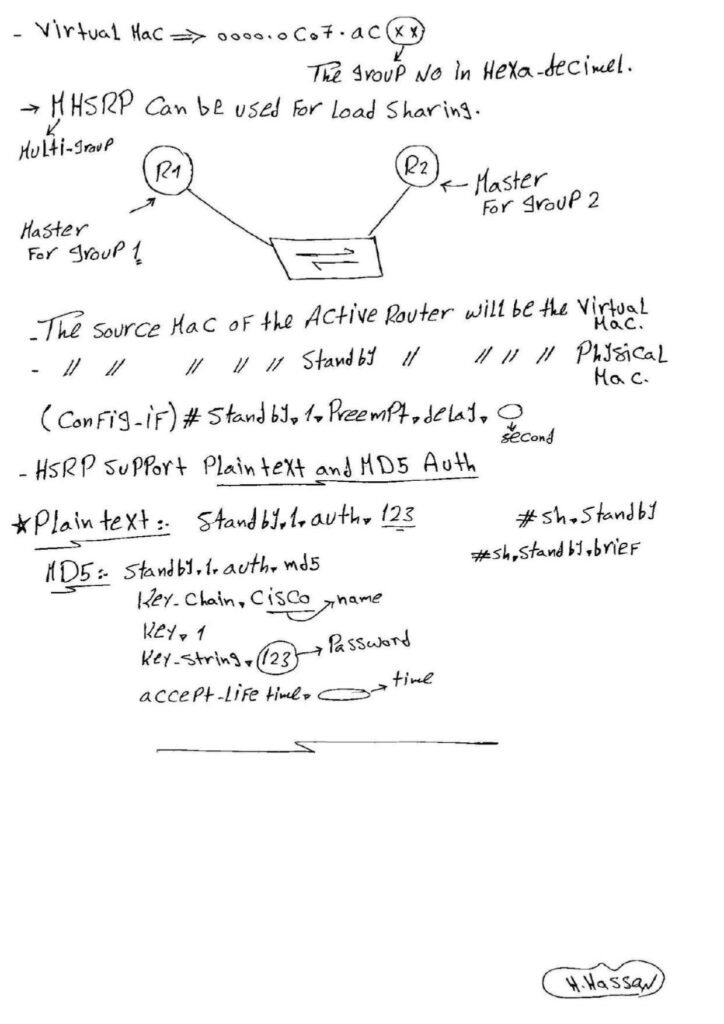 - Virtual Mac ⇒ 0000.0C07.aC(xx)
The group No in Hexa-decimel.
→ MHSRP Can be used For Load Sharing.
Multi-group
R1
R2
← Master
For group 2
Master
For group 1
- The source Mac of the Active Router will be the Virtual Mac.
- // // // // // Standby // // // // Physical Mac.
(Config-if)# Standby, 1, Preempt, delay,
second
- HSRP Support Plain text and MD5 Auth
★ Plain text:- Standby, 1, auth, 123
#sh, Standby
#sh, Standby, brief
MD5:- Standby, 1, auth, md5
Key-Chain, Cisco → name
Key, 1
Key-string, 123 → Password
accept-life time, → time
H.Hassan